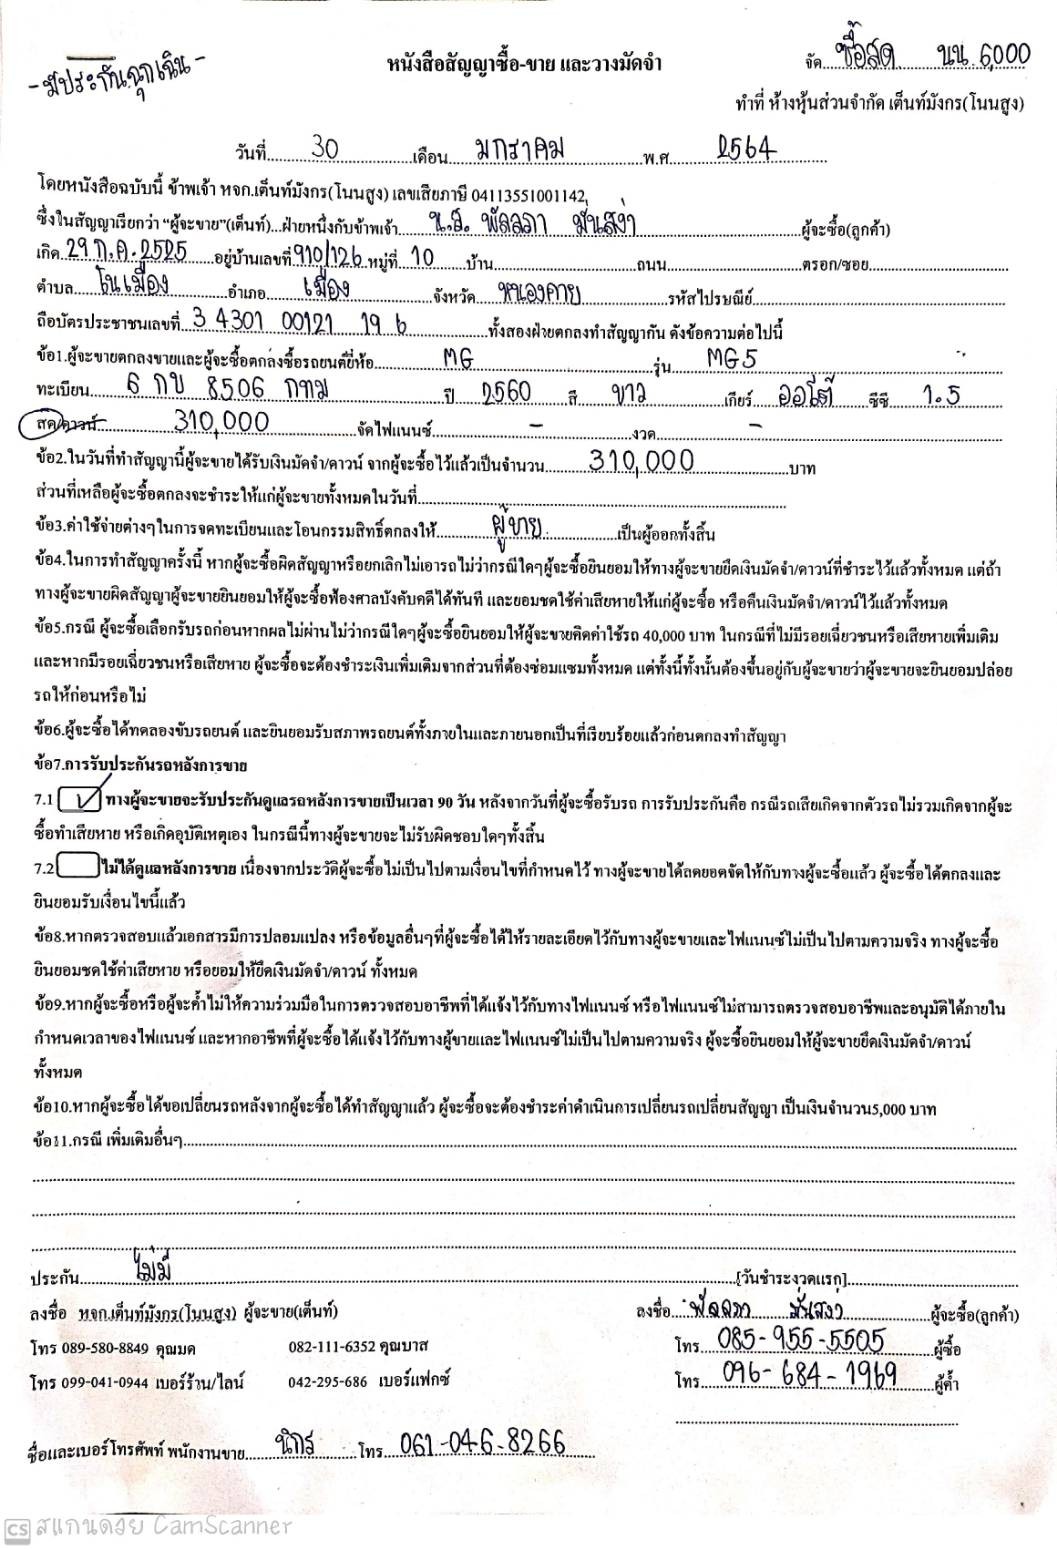 -มีประกันฉุกเฉิน-
หนังสือสัญญาซื้อ-ขาย และวางมัดจำ
จัด ซื้อสด นน. 6,000
ทำที่ ห้างหุ้นส่วนจำกัด เต็นท์มังกร(โนนสูง)
วันที่ 30 เดือน มกราคม พ.ศ 2564
โดยหนังสือฉบับนี้ ข้าพเจ้า หจก.เต็นท์มังกร(โนนสูง) เลขเสียภาษี 04113551001142
ซึ่งในสัญญาเรียกว่า "ผู้จะขาย"(เต็นท์)...ฝ่ายหนึ่งกับข้าพเจ้า น.ส. พัลลภา มั่นสง่า ผู้จะซื้อ(ลูกค้า)
เกิด 29 ก.ค. 2525 อยู่บ้านเลขที่ 910/126 หมู่ที่ 10 บ้าน ถนน ตรอก/ซอย
ตำบล ในเมือง อำเภอ เมือง จังหวัด หนองคาย รหัสไปรษณีย์
ถือบัตรประชาชนเลขที่ 3 4301 00121 19 6 ทั้งสองฝ่ายตกลงทำสัญญากัน ดังข้อความต่อไปนี้
ข้อ1.ผู้จะขายตกลงขายและผู้จะซื้อตกลงซื้อรถยนต์ยี่ห้อ MG รุ่น MG5
ทะเบียน 6 กข 8506 กทม ปี 2560 สี ขาว เกียร์ ออโต้ ซีซี 1.5
สด/ดาวน์ 310,000 จัดไฟแนนซ์ - งวด -
ข้อ2.ในวันที่ทำสัญญานี้ผู้จะขายได้รับเงินมัดจำ/ดาวน์ จากผู้จะซื้อไว้แล้วเป็นจำนวน 310,000 บาท
ส่วนที่เหลือผู้จะซื้อตกลงจะชำระให้แก่ผู้จะขายทั้งหมดในวันที่
ข้อ3.ค่าใช้จ่ายต่างๆในการจดทะเบียนและโอนกรรมสิทธิ์ตกลงให้ ผู้ขาย เป็นผู้ออกทั้งสิ้น
ข้อ4.ในการทำสัญญาครั้งนี้ หากผู้จะซื้อผิดสัญญาหรือยกเลิกไม่เอารถไม่ว่ากรณีใดๆผู้จะซื้อยินยอมให้ทางผู้จะขายยึดเงินมัดจำ/ดาวน์ที่ชำระไว้แล้วทั้งหมด แต่ถ้า
ทางผู้จะขายผิดสัญญาผู้จะขายยินยอมให้ผู้จะซื้อฟ้องศาลบังคับคดีได้ทันที และยอมชดใช้ค่าเสียหายให้แก่ผู้จะซื้อ หรือคืนเงินมัดจำ/ดาวน์ไว้แล้วทั้งหมด
ข้อ5.กรณี ผู้จะซื้อเลือกรับรถก่อนหากผลไม่ผ่านไม่ว่ากรณีใดๆผู้จะซื้อยินยอมให้ผู้จะขายคิดค่าใช้รถ 40,000 บาท ในกรณีที่ไม่มีรอยเฉี่ยวชนหรือเสียหายเพิ่มเติม
และหากมีรอยเฉี่ยวชนหรือเสียหาย ผู้จะซื้อจะต้องชำระเงินเพิ่มเติมจากส่วนที่ต้องซ่อมแซมทั้งหมด แต่ทั้งนี้ทั้งนั้นต้องขึ้นอยู่กับผู้จะขายว่าผู้จะขายจะยินยอมปล่อย
รถให้ก่อนหรือไม่
ข้อ6.ผู้จะซื้อได้ทดลองขับรถยนต์ และยินยอมรับสภาพรถยนต์ทั้งภายในและภายนอกเป็นที่เรียบร้อยแล้วก่อนตกลงทำสัญญา
ข้อ7.การรับประกันรถหลังการขาย
7.1 ✓ ทางผู้จะขายจะรับประกันดูแลรถหลังการขายเป็นเวลา 90 วัน หลังจากวันที่ผู้จะซื้อรับรถ การรับประกันคือ กรณีรถเสียเกิดจากตัวรถไม่รวมเกิดจากผู้จะ
ซื้อทำเสียหาย หรือเกิดอุบัติเหตุเอง ในกรณีนี้ทางผู้จะขายจะไม่รับผิดชอบใดๆทั้งสิ้น
7.2 ไม่ได้ดูแลหลังการขาย เนื่องจากประวัติผู้จะซื้อไม่เป็นไปตามเงื่อนไขที่กำหนดไว้ ทางผู้จะขายได้ลดยอดจัดให้กับทางผู้จะซื้อแล้ว ผู้จะซื้อได้ตกลงและ
ยินยอมรับเงื่อนไขนี้แล้ว
ข้อ8.หากตรวจสอบแล้วเอกสารมีการปลอมแปลง หรือข้อมูลอื่นๆที่ผู้จะซื้อได้ให้รายละเอียดไว้กับทางผู้จะขายและไฟแนนซ์ไม่เป็นไปตามความจริง ทางผู้จะซื้อ
ยินยอมชดใช้ค่าเสียหาย หรือยอมให้ยึดเงินมัดจำ/ดาวน์ ทั้งหมด
ข้อ9.หากผู้จะซื้อหรือผู้จะค้ำไม่ให้ความร่วมมือในการตรวจสอบอาชีพที่ได้แจ้งไว้กับทางไฟแนนซ์ หรือไฟแนนซ์ไม่สามารถตรวจสอบอาชีพและอนุมัติได้ภายใน
กำหนดเวลาของไฟแนนซ์ และหากอาชีพที่ผู้จะซื้อได้แจ้งไว้กับทางผู้ขายและไฟแนนซ์ไม่เป็นไปตามความจริง ผู้จะซื้อยินยอมให้ผู้จะขายยึดเงินมัดจำ/ดาวน์
ทั้งหมด
ข้อ10.หากผู้จะซื้อได้ขอเปลี่ยนรถหลังจากผู้จะซื้อได้ทำสัญญาแล้ว ผู้จะซื้อจะต้องชำระค่าดำเนินการเปลี่ยนรถเปลี่ยนสัญญา เป็นเงินจำนวน5,000 บาท
ข้อ11.กรณี เพิ่มเติมอื่นๆ
ประกัน ไม่มี [วันชำระงวดแรก]
ลงชื่อ หจก.เต็นท์มังกร(โนนสูง) ผู้จะขาย(เต็นท์) ลงชื่อ พัลลภา มั่นสง่า ผู้จะซื้อ(ลูกค้า)
โทร 089-580-8849 คุณมด 082-111-6352 คุณบาส โทร 085-955-5505 ผู้ซื้อ
โทร 099-041-0944 เบอร์ร้าน/ไลน์ 042-295-686 เบอร์แฟกซ์ โทร 096-684-1969 ผู้ค้ำ
ชื่อและเบอร์โทรศัพท์ พนักงานขาย นิกร โทร 061-046-8266
CS สแกนด้วย CamScanner